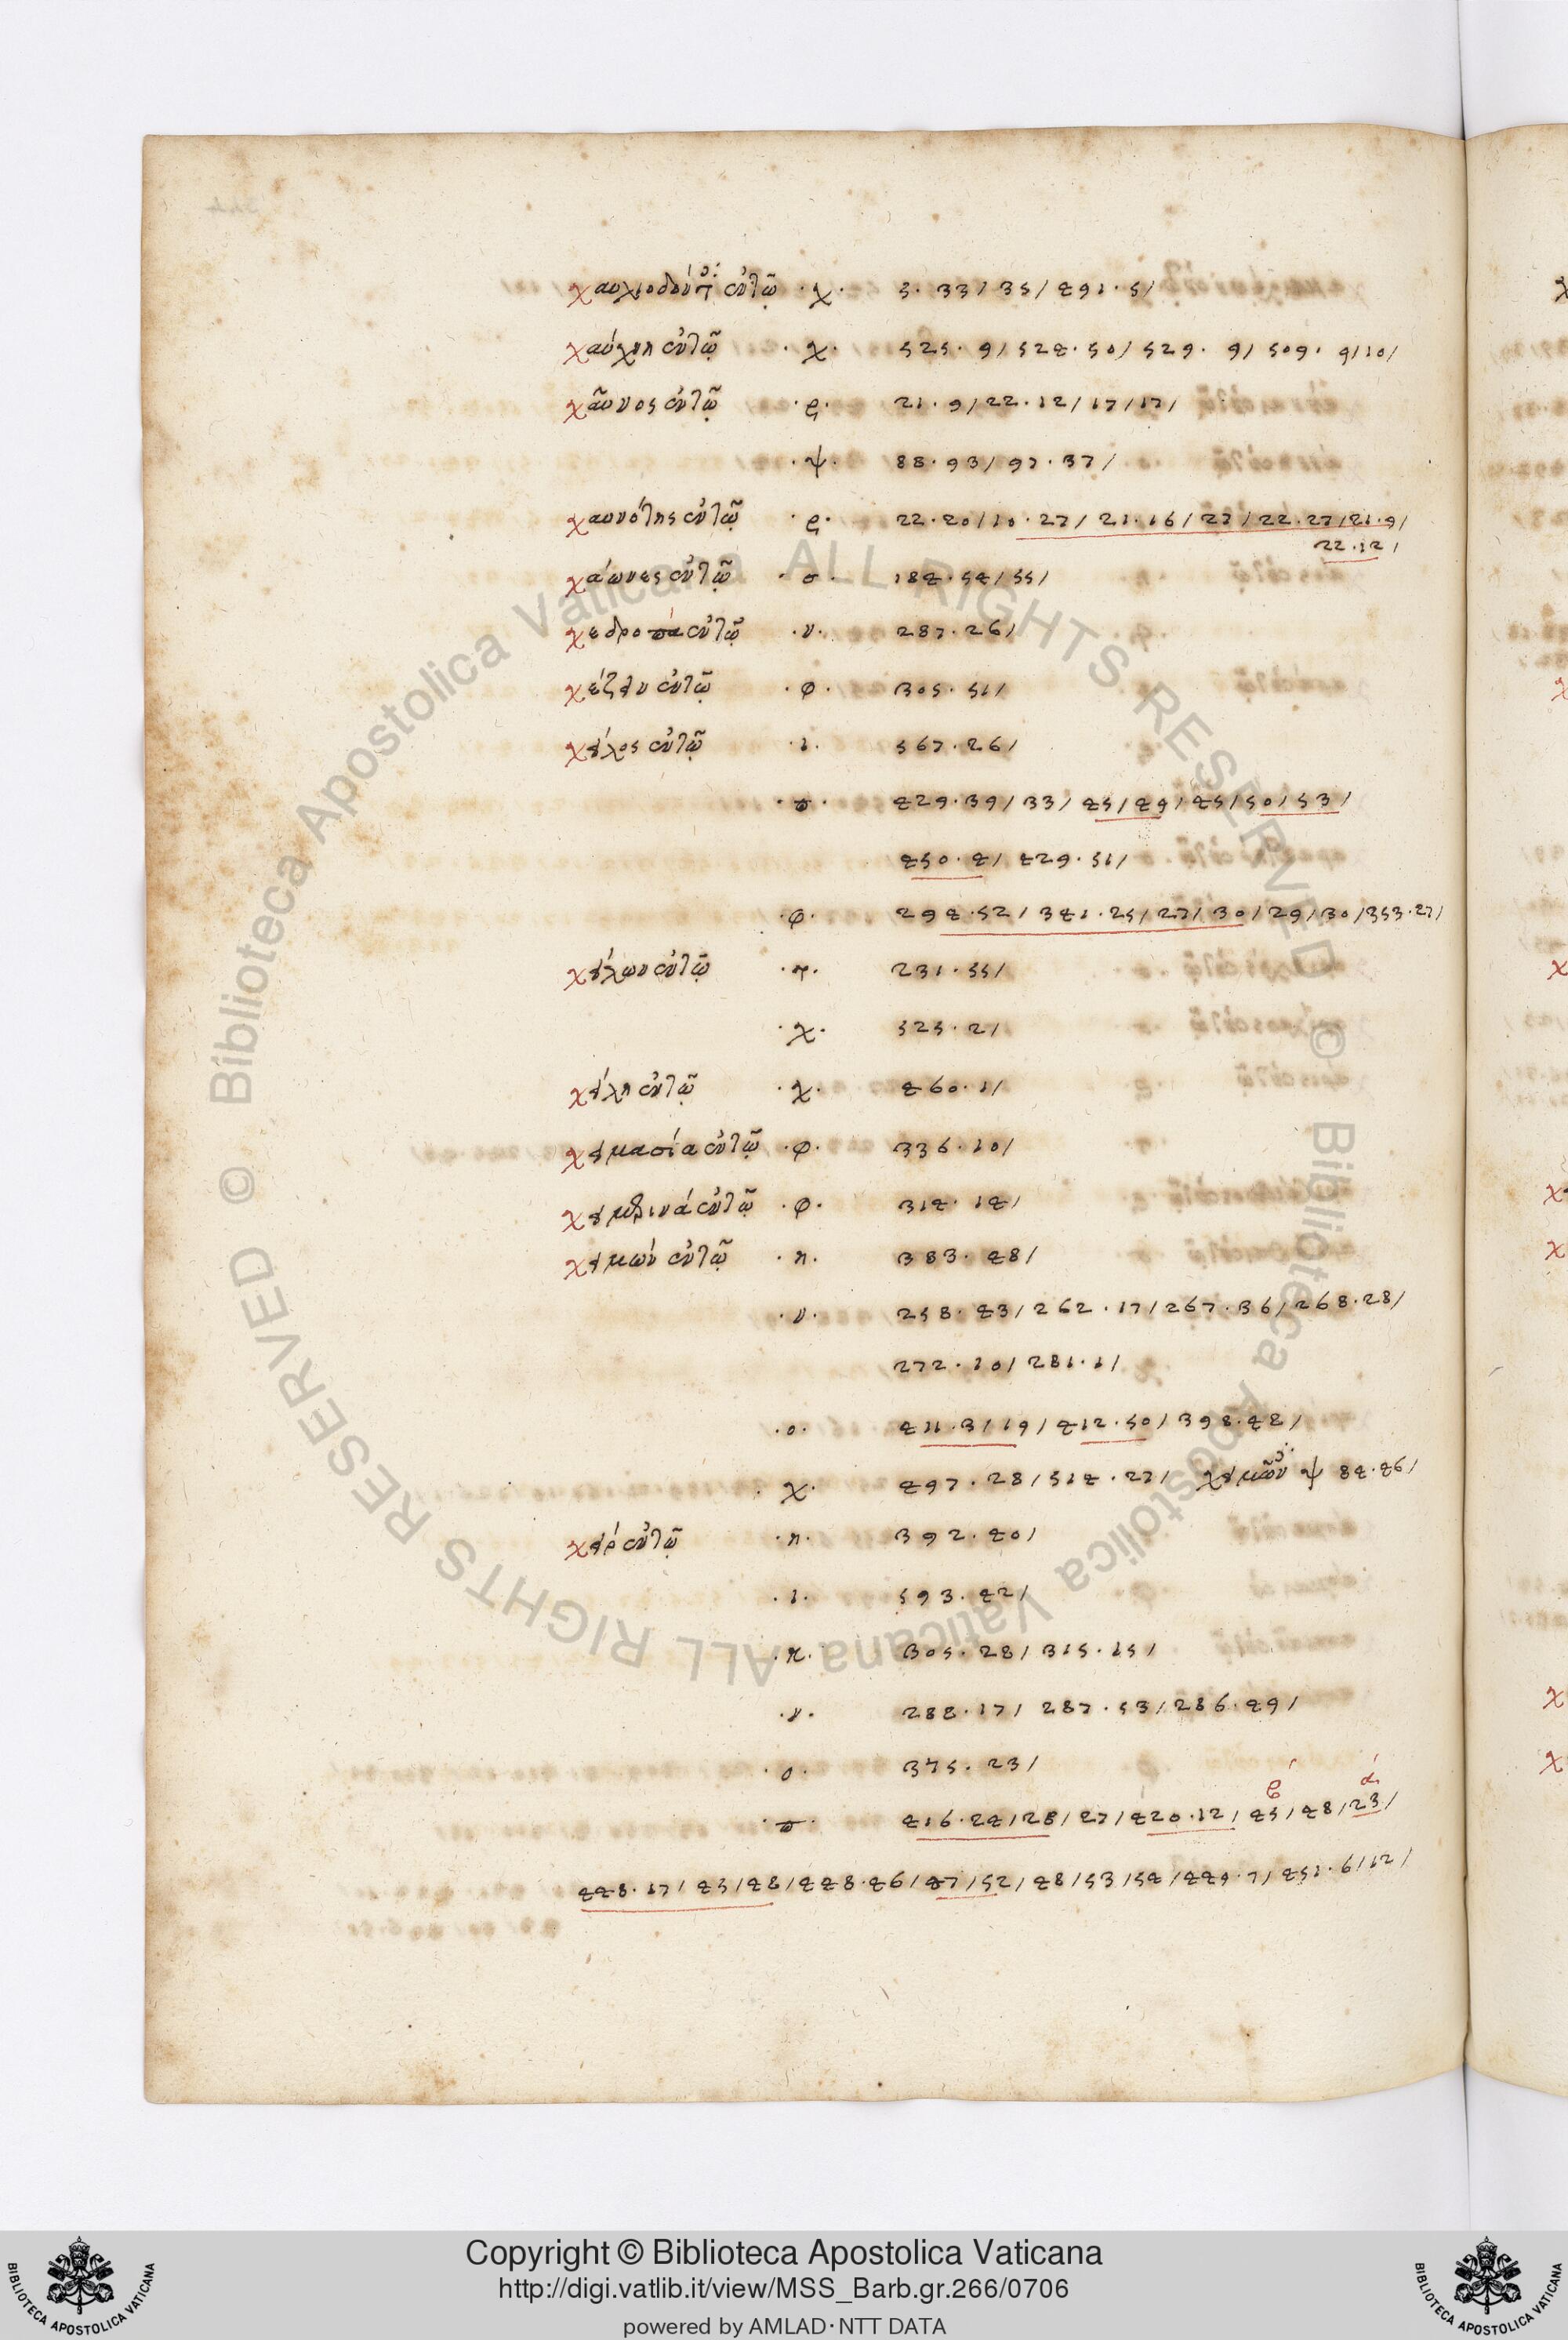 χαυλιοδόντ ἐν τῷ · χ · 5 · 33 / 35 / 491 · 5 /
χαύχη ἐν τῷ · χ · 525 · 9 / 524 · 50 / 529 · 9 / 509 · 9 / 10 /
χαῦνος ἐν τῷ · ρ · 21 · 9 / 22 · 12 / 17 / 17 /
· ψ · 88 · 93 / 97 · 37 /
χαυνότης ἐν τῷ · ρ · 22 · 20 / 10 · 27 / 21 · 16 / 27 / 22 · 27 / 21 · 9 /
22 · 12 /
χάωνες ἐν τῷ · σ · 184 · 54 / 55 /
χεδροπά ἐν τῷ · ν · 287 · 26 /
χέζειν ἐν τῷ · φ · 305 · 51 /
χεῖλος ἐν τῷ · ι · 567 · 26 /
· π · 429 · 39 / 33 / 45 / 49 / 45 / 50 / 53 /
450 · 4 / 429 · 51 /
· φ · 294 · 52 / 341 · 25 / 27 / 30 / 29 / 30 / 353 · 27 /
χείλων ἐν τῷ · τ · 231 · 55 /
· χ · 525 · 2 /
χείλη ἐν τῷ · χ · 460 · 1 /
χειμασία ἐν τῷ · φ · 336 · 10 /
χειμερινά ἐν τῷ · φ · 314 · 14 /
χειμών ἐν τῷ · η · 383 · 48 /
· ν · 258 · 43 / 262 · 17 / 267 · 36 / 268 · 28 /
272 · 10 / 281 · 1 /
· ο · 411 · 3 / 19 / 412 · 50 / 398 · 48 /
· χ · 497 · 28 / 514 · 27 / χειμῶν ψ 84 · 46 /
χείρ ἐν τῷ · η · 392 · 40 /
· ι · 593 · 42 /
· κ · 305 · 28 / 315 · 15 /
· ν · 288 · 17 / 287 · 53 / 286 · 49 /
· ο · 375 · 23 /
· π · 416 · 24 / 28 / 27 / 420 · 12 / 45 / 48 / 23 /
448 · 17 / 45 / 48 / 448 · 46 / 47 / 52 / 48 / 53 / 54 / 449 · 7 / 451 · 6 / 12 /
Copyright © Biblioteca Apostolica Vaticana
http://digi.vatlib.it/view/MSS_Barb.gr.266/0706
powered by AMLAD·NTT DATA
BIBLIOTECA APOSTOLICA VATICANA
BIBLIOTECA APOSTOLICA VATICANA
© Biblioteca Apostolica Vaticana ALL RIGHTS RESERVED
© Biblioteca Apostolica Vaticana ALL RIGHTS RESERVED